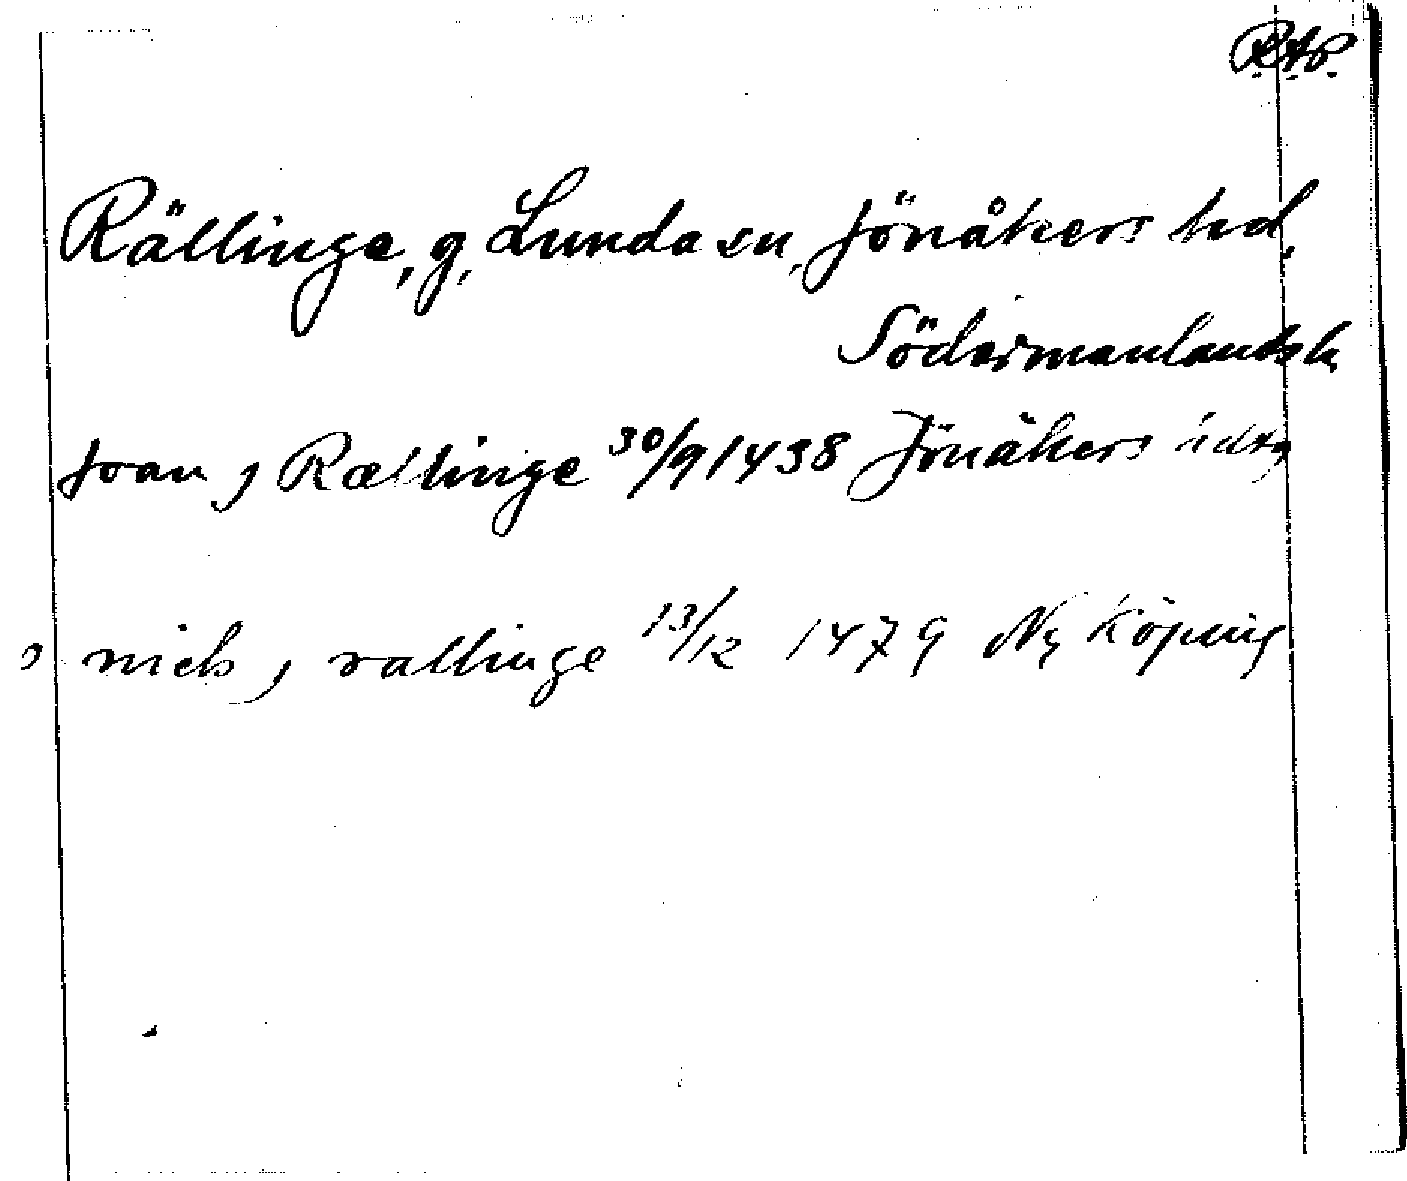 RAp.
Rällinge, g, Lunda sn, Jönåkers hd,
Södermanlands l.
Joan j Rællinge 30/9 1438 Jönåkers
j niels j rallinge 13/12 1479 Ny Köping